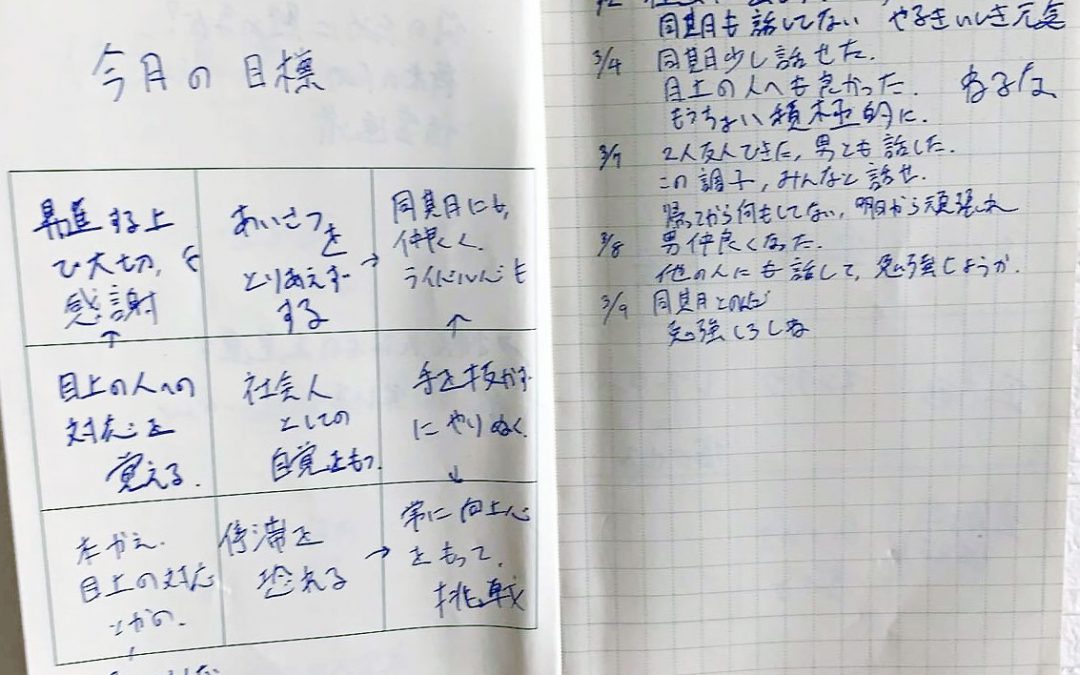 今月の目標
昇進する上
で大切,
感謝
↑
あいさつを
とりあえず
する
→
同期にも,
仲良く.
ライバルでも
↑
目上の人への
対応を
覚える.
社会人
としての
自覚をもつ
手を抜かず
にやりぬく.
↓
本かえ.
目上の対応
とかの.
停滞を
恐れる
→
常に向上心
をもって,
挑戦
同期も話してない やるきいしき元気
3/4 同期少し話せた.
目上の人へも良かった. ねるな
もうちょい積極的に.
3/7 2人友人できた, 男とも話した.
この調子, みんなと話せ.
帰ってから何もしてない, 明日から頑張れ
3/8 男仲良くなった.
他の人にも話して, 勉強しようか.
3/9 同期とのんだ
勉強しろしね